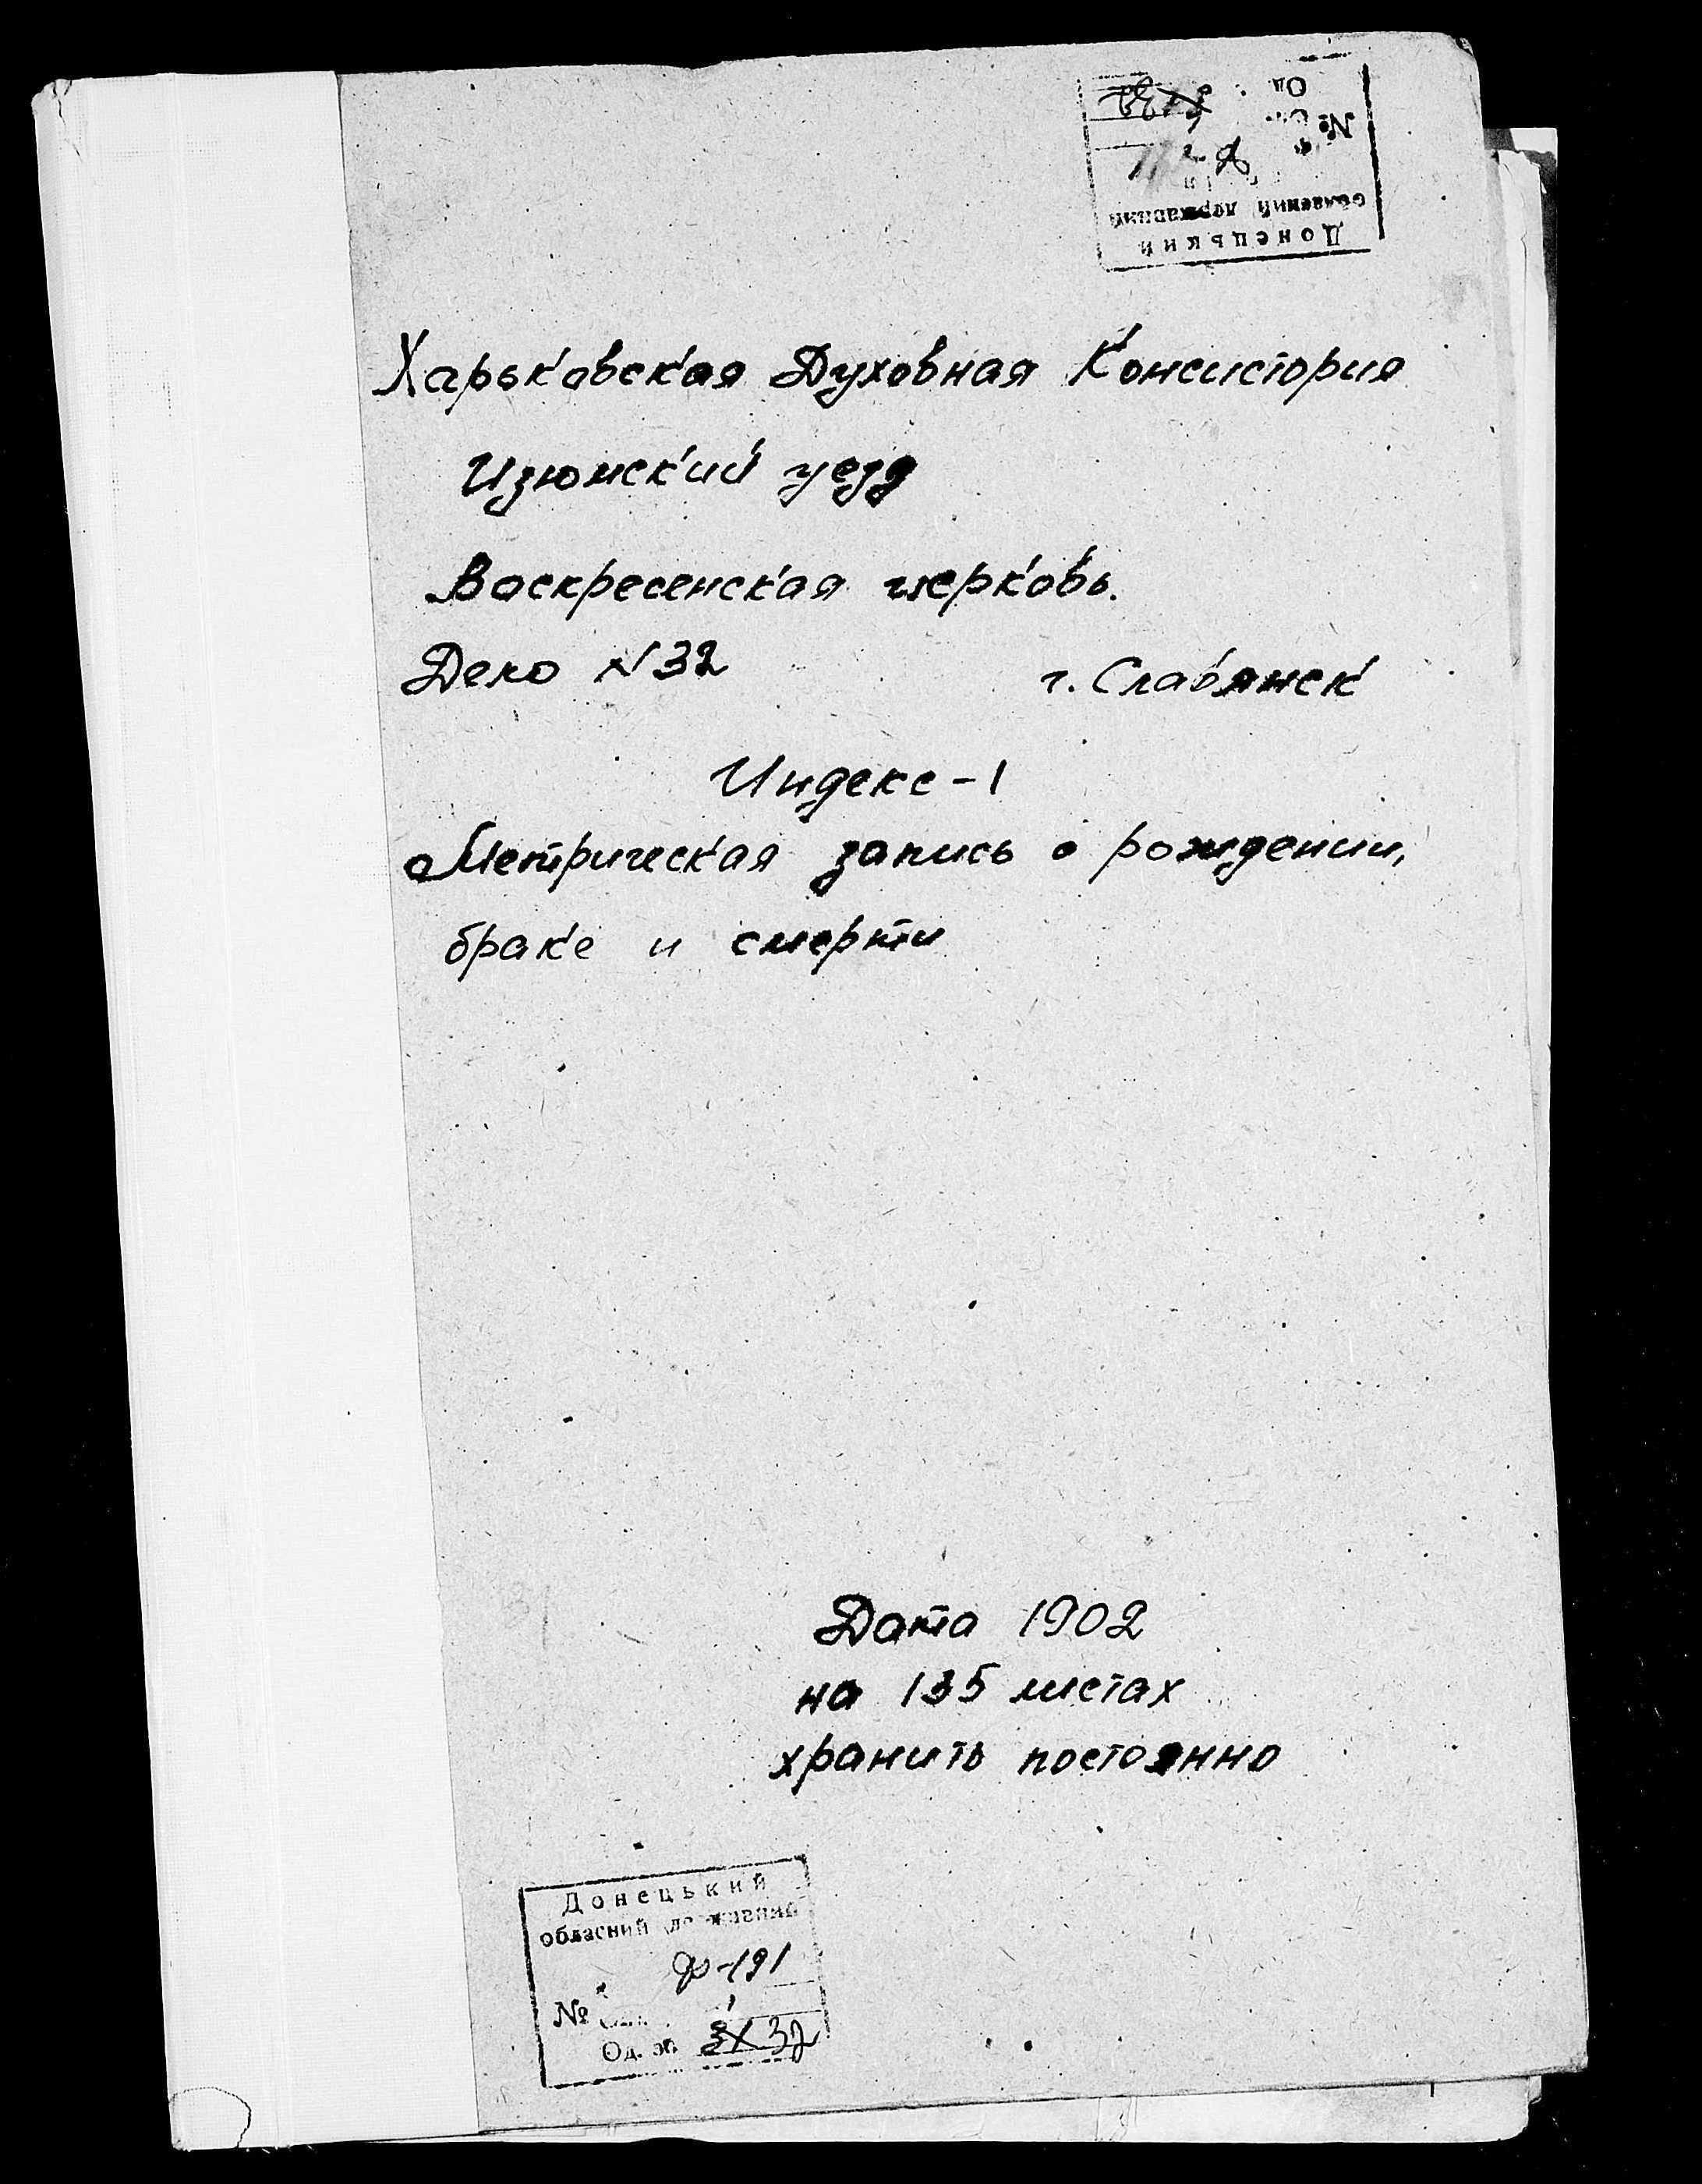 Донецький
обласний державний
№
Од
Харьковская Духовная Консистория
Изюмский уезд
Воскресенская церковь.
Дело N 32
г. Славянск
Индекс - 1
Метрическая запись о рождении,
браке и смерти
Дата 1902
на 135 листах
хранить постоянно
Донецький
обласний державний
Ф-191
№ 1
Од. зб. 32